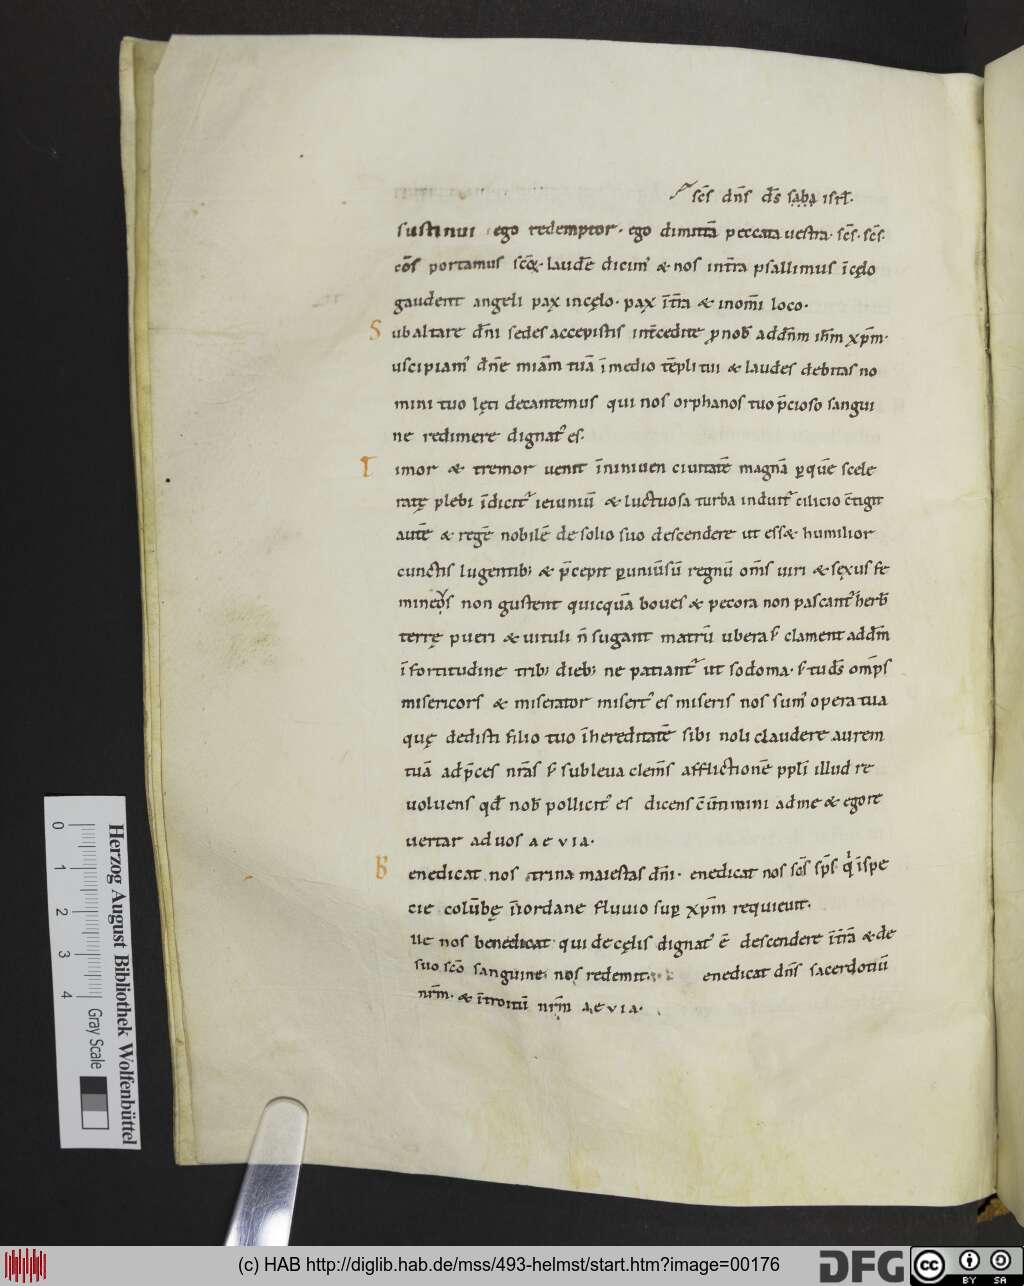 scs dns ds saba isrl.
sustinui ego redemptor. ego dimittā peccata uestra. scs. scs.
portamus laudē dicim⁹ & nos int̄ra psallimus īcęlo
gaudent angeli pax incęlo. pax īt̄ra & inom̄i loco.
S ubaltare dn̄i sedes accepistis int̄cedite ꝓnob̄ addn̄m ih̄m xp̄m.
uscipiam⁹ dn̄e miām tuā īmedio tēpli tui & laudes debitas no
mini tuo lęti decantemus qui nos orphanos tuo p̄cioso sangui
ne redimere dignat⁹ es.
T imor & tremor uenit īniniuen ciuitatē magnā ꝑquē scele
ratę plebi īdicit᷑ ieiuniū & luctuosa turba induit᷑ cilicio c̄tigit
autē & regē nobilē desolio suo descendere ut ess& humilior
cunctis lugentib; & p̄cepit ꝑuniūsū regnū om̄s uiri & sexus fe
mineos non gustent quicquā boues & pecora non pascant᷑ herb̄
terrę pueri & uituli n̄ sugant matrū ubera s̄ clament addn̄m
īfortitudine trib; dieb; ne patiant᷑ ut sodoma. s̄ tu ds̄ omp̄s
misericors & miserator misert⁹ es miseris nos sum⁹ opera tua
quę dedisti filio tuo īhereditatē sibi noli claudere aurem
tuā adp̄ces nr̄as s̄ subleua clem̄s afflictionē ppl̄i illud re
uoluens qd̄ nob̄ pollicit⁹ es dicens c̄ūtimini adme & egore
uertar aduos aeuia.
B enedicat nos trina maiestas dn̄i. enedicat nos scs̄ sps̄ q̇ īspe
cie colūbę īiordane fluuio suꝑ xp̄m requieuit.
lle nos benedicat qui decęlis dignat⁹ ē descendere īt̄rā & de
suo scō sanguine nos redemit. enedicat dns̄ sacerdotiū
nr̄m. & ītroitū nr̄m aeuia.
0 1 2 3 4
Herzog August Bibliothek Wolfenbüttel
Gray Scale
(c) HAB http://diglib.hab.de/mss/493-helmst/start.htm?image=00176
DFG
cc BY SA